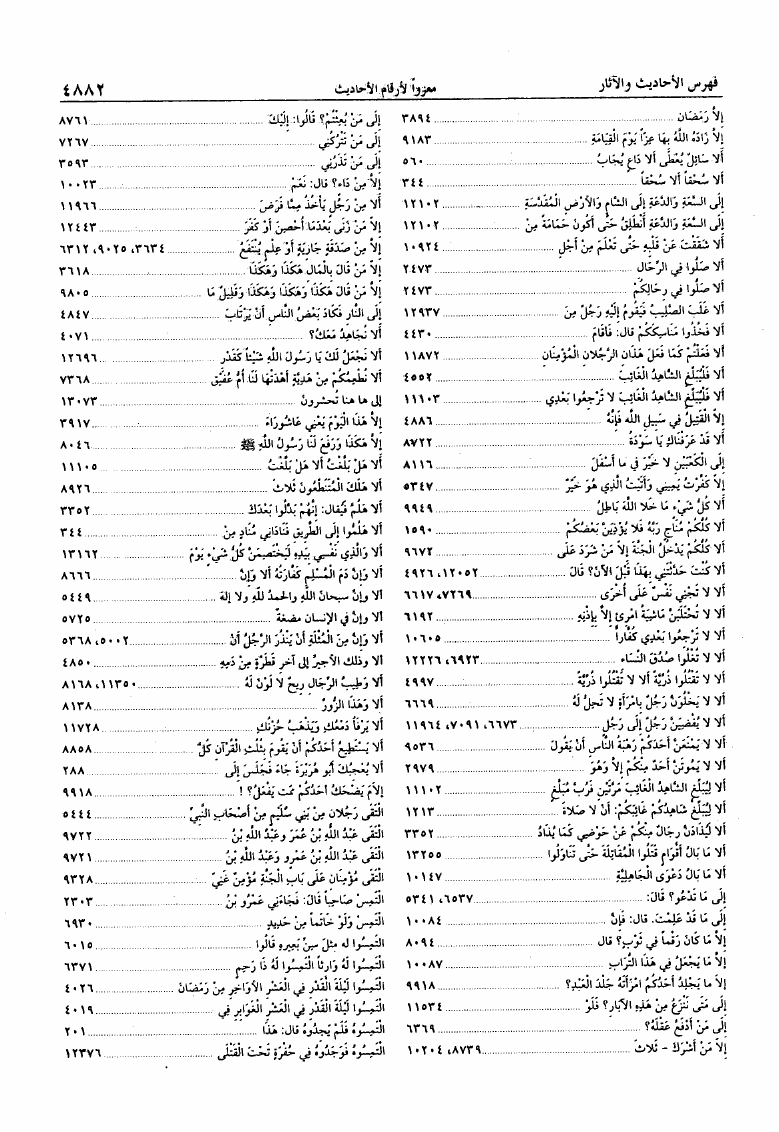 فهرس الأحاديث والآثار
معزواً لأرقام الأحاديث
٤٨٨٢
إِلاَّ رَمَضَان ٣٨٩٤
إِلاَّ زَادَهُ اللَّهُ بِهَا عِزّاً يَوْمَ الْقِيَامَةِ ٩١٨٣
أَلا سَائِلٌ يُعْطَى أَلا دَاعٍ يُجَابُ ٥٦٠
أَلا سُحْقاً أَلا سُحْقاً ٣٤٤
إِلَى السَّعَةِ وَالدَّعَةِ إِلَى الشَّامِ وَالأَرْضِ الْمُقَدَّسَةِ ١٢١٠٢
إِلَى السَّعَةِ وَالدَّعَةِ أَنْطَلِقُ حَتَّى أَكُونَ حَمَامَةً مِنْ ١٢١٠٢
أَلا شَقَقْتَ عَنْ قَلْبِهِ حَتَّى تَعْلَمَ مِنْ أَجْلِ ١٠٩٢٤
أَلا صَلُّوا فِي الرِّحَال ٢٤٧٣
أَلا صَلُّوا فِي رِحَالِكُمْ ٢٤٧٣
أَلا غَلَبَ الصَّلِيبُ فَيَقُومُ إِلَيْهِ رَجُلٌ مِنَ ١٢٩٣٧
أَلا فَخُذُوا مَنَاسِكَكُمْ قال: فَأَقَامَ ٤٤٣٠
أَلا فَعَلْتُمْ كَمَا فَعَلَ هَذَانِ الرَّجُلانِ الْمُؤْمِنَانِ ١١٨٧٢
أَلا فَلْيُبَلِّغِ الشَّاهِدُ الْغَائِبَ ٤٥٥٢
أَلا فَلْيُبَلِّغِ الشَّاهِدُ الْغَائِبَ لا تَرْجِعُوا بَعْدِي ١١١٠٣
إِلاَّ الْقَتِيلُ فِي سَبِيلِ اللَّه فَإِنَّهُ ٤٨٨٦
أَلا قَدْ عَرَفْنَاكِ يَا سَوْدَةُ ٨٧٢٢
إِلَى الْكَعْبَيْنِ لا خَيْرَ فِي مَا أَسْفَلَ ٨١١٦
إِلاَّ كَفَّرْتُ يَمِينِي وَأَتَيْتُ الَّذِي هُوَ خَيْرٌ ٥٣٤٧
أَلا كُلُّ شَيْءٍ مَا خَلا اللَّهَ بَاطِلُ ٩٩٤٩
أَلا كُلُّكُمْ مُنَاجٍ رَبَّهُ فَلا يُؤْذِيَنَّ بَعْضُكُمْ ١٥٩٠
أَلا كُلُّكُمْ يَدْخُلُ الْجَنَّةَ إِلاَّ مَنْ شَرَدَ عَلَى ٩٦٧٢
أَلا كُنْتَ حَدَّثْتَنِي بِهَذَا قَبْلَ الآنَ؟ قَالَ ١٢٠٥٢، ٤٩٢٦
أَلا لا تَجْنِي نَفْسٌ عَلَى أُخْرَى ٧٢٦٩، ٦٦١٧
أَلا لا تُحْتَلَبَنَّ مَاشِيَةُ امْرِئٍ إِلاَّ بِإِذْنِهِ ٦١٩٢
أَلا لا تَرْجِعُوا بَعْدِي كُفَّاراً ١٠٦٠٥
أَلا لا تُغْلُوا صُدُقَ النِّسَاءِ ٦٩٢٣، ١٢٢٢٦
أَلا لا تَقْتُلُوا ذُرِّيَّةً أَلا لا تَقْتُلُوا ذُرِّيَّةً ٤٩٩٧
أَلا لا يَخْلُوَنَّ رَجُلٌ بِامْرَأَةٍ لا تَحِلُّ لَهُ ٦٦٦٩
أَلا لا يُفْضِيَنَّ رَجُلٌ إِلَى رَجُلٍ ٦٦٧٣، ٧٠٩١، ١١٩٦٤
أَلا لا يَمْنَعَنَّ أَحَدَكُمْ رَهْبَةُ النَّاسِ أَنْ يَقُولَ ٩٥٣٦
أَلا لا يَمُوتَنَّ أَحَدٌ مِنْكُمْ إِلاَّ وَهُوَ ٢٩٧٩
أَلا لِيُبَلِّغِ الشَّاهِدُ الْغَائِبَ مَرَّتَيْنِ فَرُبَّ مُبَلَّغٍ ١١١٠٢
أَلا لِيُبَلِّغْ شَاهِدُكُمْ غَائِبَكُمْ: أَنْ لا صَلاةَ ١٢١٣
أَلا لَيُذَادَنَّ رِجَالٌ مِنْكُمْ عَنْ حَوْضِي كَمَا يُذَادُ ٣٣٥٢
أَلا مَا بَالُ أَقْوَامٍ قَتَلُوا الْمُقَاتِلَةَ حَتَّى تَنَاوَلُوا ١٣٢٥٥
أَلا مَا بَالُ دَعْوَى الْجَاهِلِيَّةِ ١٠١٤٧
إِلَى مَا تَدْعُو؟ قَالَ: ٦٥٣٧، ٥٣٤١
إِلَى مَا قَدْ عَلِمْتَ. قال: فَإِنَّ ١٠٠٨٤
إِلاَّ مَا كَانَ رَقْماً فِي ثَوْبٍ؟ قال ٨٠٩٤
إِلاَّ مَا يَجْعَلُ فِي هَذَا التُّرَابِ ١٠٠٨٧
إِلاَمَ يَجْلِدُ أَحَدُكُمُ امْرَأَتَهُ جَلْدَ الْعَبْدِ؟ ٩٩١٨
إِلَى مَتَى نَنْزَعُ مِنْ هَذِهِ الآبَارِ؟ فَلَوْ ١١٥٣٤
إِلَى مَنْ أَدْفَعُ عَقْلَهُ؟ ٦٣٦٩
إِلاَّ مَنْ أَشْرَكَ - ثَلاثَ ٨٧٣٩، ١٠٢٠٤
إِلَى مَنْ بُعِثْتُمْ؟ قَالُوا: إِلَيْكَ ٨٧٦١
إِلَى مَنْ تَتْرُكُنِي ٧٢٦٧
إِلَى مَنْ تَذَرُنِي ٣٥٩٣
إِلاَّ مِنْ دَاءٍ؟ قال: نَعَمْ ١٠٠٢٣
أَلا مِنْ رَجُلٍ يَأْخُذُ مِمَّا فَرَضَ ١١٩٦٦
إِلاَّ مَنْ زَنَى بَعْدَمَا أُحْصِنَ أَوْ كَفَرَ ١٢٤٤٣
إِلاَّ مِنْ صَدَقَةٍ جَارِيَةٍ أَوْ عِلْمٍ يُنْتَفَعُ ٣٦٣٤، ٩٠٢٥، ٦٣١٢
إِلاَّ مَنْ قَالَ بِالْمَالِ هَكَذَا وَهَكَذَا ٣٦١٨
إِلاَّ مَنْ قَالَ هَكَذَا وَهَكَذَا وَهَكَذَا وَقَلِيلٌ مَا ٩٨٠٥
إِلَى النَّارِ فَكَادَ بَعْضُ النَّاسِ أَنْ يَرْتَابَ ٤٨٤٧
أَلا نُجَاهِدُ مَعَكُ؟ ٤٠٧١
أَلا نَجْعَلُ لَكَ يَا رَسُولَ اللَّهِ شَيْئاً كَقَدْرِ ١٢٦٩٦
أَلا نُطْعِمُكُمْ مِنْ هَدِيَّةٍ أَهْدَتْهَا لَنَا أُمُّ عُفَيْقٍ ٧٣٦٨
إلى ها هنا تحشرون ١٣٠٧٣
إِلاَّ هَذَا الْيَوْمَ يَعْنِي عَاشُورَاءَ ٣٩١٧
إِلاَّ هَكَذَا وَرَفَعَ لَنَا رَسُولُ اللَّهِ ﷺ ٨٠٤٦
أَلا هَلْ بَلَّغْتُ أَلا هَلْ بَلَّغْتُ ١١١٠٥
أَلا هَلَكَ الْمُتَنَطِّعُونَ ثَلاثَ ٨٩٢٦
أَلا هَلُمَّ فَيُقَال: إِنَّهُمْ بَدَّلُوا بَعْدَكَ ٣٣٥٢
أَلا هَلُمُّوا إِلَى الطَّرِيقِ فَنَادَانِي مُنَادٍ مِنْ ٣٤٤
أَلا وَالَّذِي نَفْسِي بِيَدِهِ لَيَخْتَصِمَنَّ كُلُّ شَيْءٍ يَوْمَ ١٣١٦٢
أَلا وَإِنَّ دَمَ الْمُسْلِمِ كَفَّارَتُهُ أَلا وَإِنَّ ٨٦٦٦
ألا وإنّ سبحان اللّه والحمدُ للّه ولا إلهَ ٥٤٤٩
ألا وإنَّ في الإنسان مضغةً ٥٧٢٥
أَلا وَإِنَّ مِنَ الْمُثْلَةِ أَنْ يَنْذُرَ الرَّجُلُ أَنْ ٥٠٠٢، ٥٣٦٨
ألا وذلك الأجيرُ إلى آخرِ قطرَةٍ مِنْ دَمِهِ ٤٨٥٠
أَلا وَطِيبُ الرِّجَالِ رِيحٌ لاَ لَوْنَ لَهُ ١١٣٥٠، ٨١٦٨
أَلا وَهَذَا الزُّورُ ٨١٣٨
أَلا يَرْقَأُ دَمْعُكِ وَيَذْهَبُ حُزْنُكِ ١١٧٢٨
أَلا يَسْتَطِيعُ أَحَدُكُمْ أَنْ يَقُومَ بِثُلُثِ الْقُرْآنِ كُلَّ ٨٨٥٨
أَلا يُعْجِبُكَ أَبُو هُرَيْرَةَ جَاءَ فَجَلَسَ إِلَى ٢٨٨
إِلاَمَ يَضْحَكُ أَحَدُكُمْ مِمَّا يَفْعَلُ؟ ! ٩٩١٨
الْتَقَى رَجُلانِ مِنْ بَنِي سُلَيْمٍ مِنْ أَصْحَابِ النَّبِيِّ ٥٤٤٤
الْتَقَى عَبْدُ اللَّهِ بْنُ عُمَرَ وَعَبْدُ اللَّهِ بْنُ ٩٧٢٢
الْتَقَى عَبْدُ اللَّهِ بْنُ عَمْرٍو وَعَبْدُ اللَّهِ بْنُ ٩٧٢١
الْتَقَى مُؤْمِنَانِ عَلَى بَابِ الْجَنَّةِ مُؤْمِنٌ غَنِيٌّ ٩٣٢٨
الْتَمِسْ صَاحِباً قَالَ: فَجَاءَنِي عَمْرُو بْنُ ٢٣٠٣
الْتَمِسْ وَلَوْ خَاتَماً مِنْ حَدِيدٍ ٦٩٣٠
الْتَمِسُوا له مِثْلَ سِنِّ بَعِيرِهِ قَالُوا ٦٠١٥
الْتَمِسُوا لَهُ وَارِثاً الْتَمِسُوا لَهُ ذَا رَحِمٍ ٦٣٧١
الْتَمِسُوا لَيْلَةَ الْقَدْرِ فِي الْعَشْرِ الأَوَاخِرِ مِنْ رَمَضَانَ ٤٠٢٦
الْتَمِسُوا لَيْلَةَ الْقَدْرِ فِي الْعَشْرِ الْغَوَابِرِ فِي ٤٠١٩
الْتَمِسُوهُ فَلَمْ يَجِدُوهُ قال: هَذَا ٢٠١
الْتَمِسُوهُ فَوَجَدُوهُ فِي حُفْرَةٍ تَحْتَ الْقَتْلَى ١٢٣٧٦